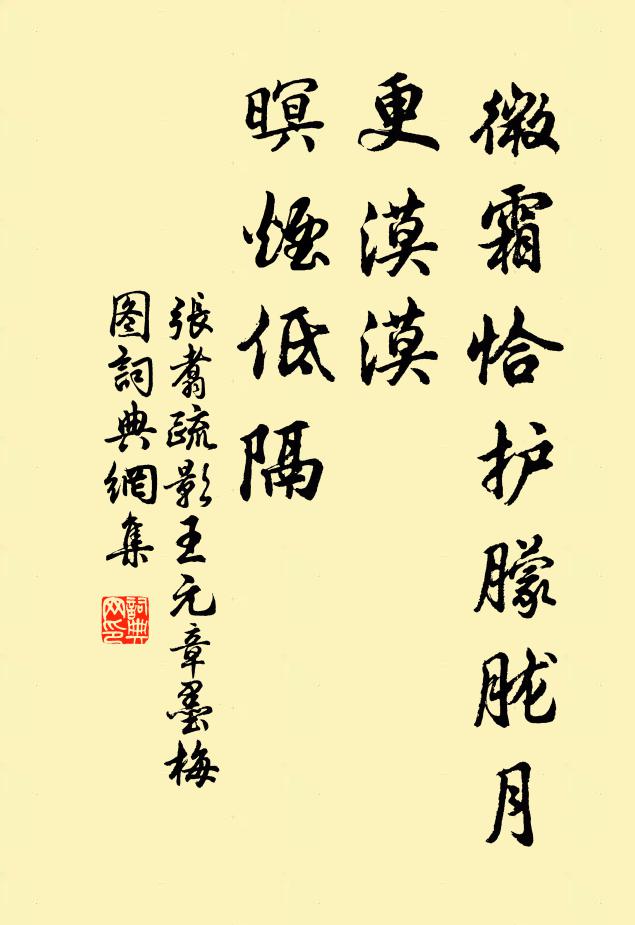 微霜恰护朦胧月
更漠漠
暝煙低隔
張翥疏影王元章墨梅
图詞典網集
詞典网印